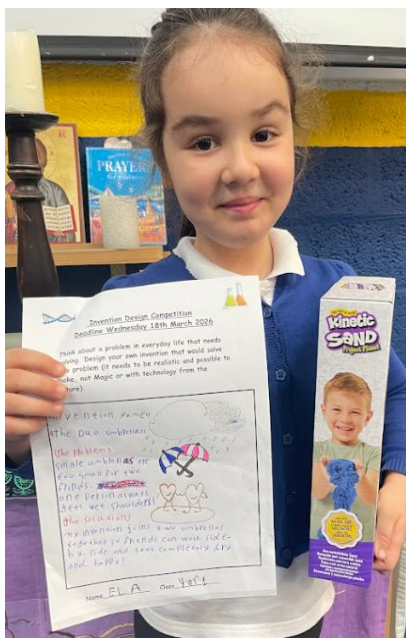 PRAYERS
Invention Design Competition
Deadline Wednesday 18th March 2026
Think about a problem in everyday life that needs
Design your own invention that would solve
problem (it needs to be realistic and possible to
make, not Magic or with technology from the
Invention name
the Duo umbrella
(the problem)
single umbrellas are
too small for two
one person always
gets wet shoulders!
(the solution)
my invention joins two umbrellas
together so friends can walk side-
by-side and stay completely dry
and happy!
Name ELA Class York
Kinetic
SAND